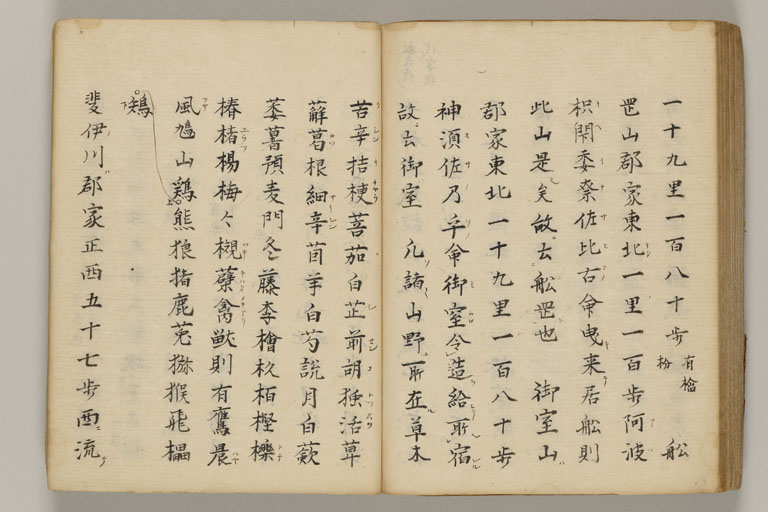 一十九里一百八十歩 有檜枌 舩
罡山郡家東北一里一百歩阿波
枳閇委奈佐比古命曳来居舩則
此山是矣故云舩罡也 御室山
郡家東北一十九里一百八十歩
神須佐乃乎命御室令造給所宿
故云御室 凡諸山野所在草木
苦辛桔梗菩茄白芷前胡独活萆
薢葛根細辛茴芋白芍説月白蘞
萎蕤預麦門冬藤李檜杉栢樫櫟
椿楮楊梅々槻蘗禽獣則有鷹晨
風鳩山鶏熊狼猪鹿兎猕猴飛𤢖
鵄
斐伊川郡家正西五十七歩西流